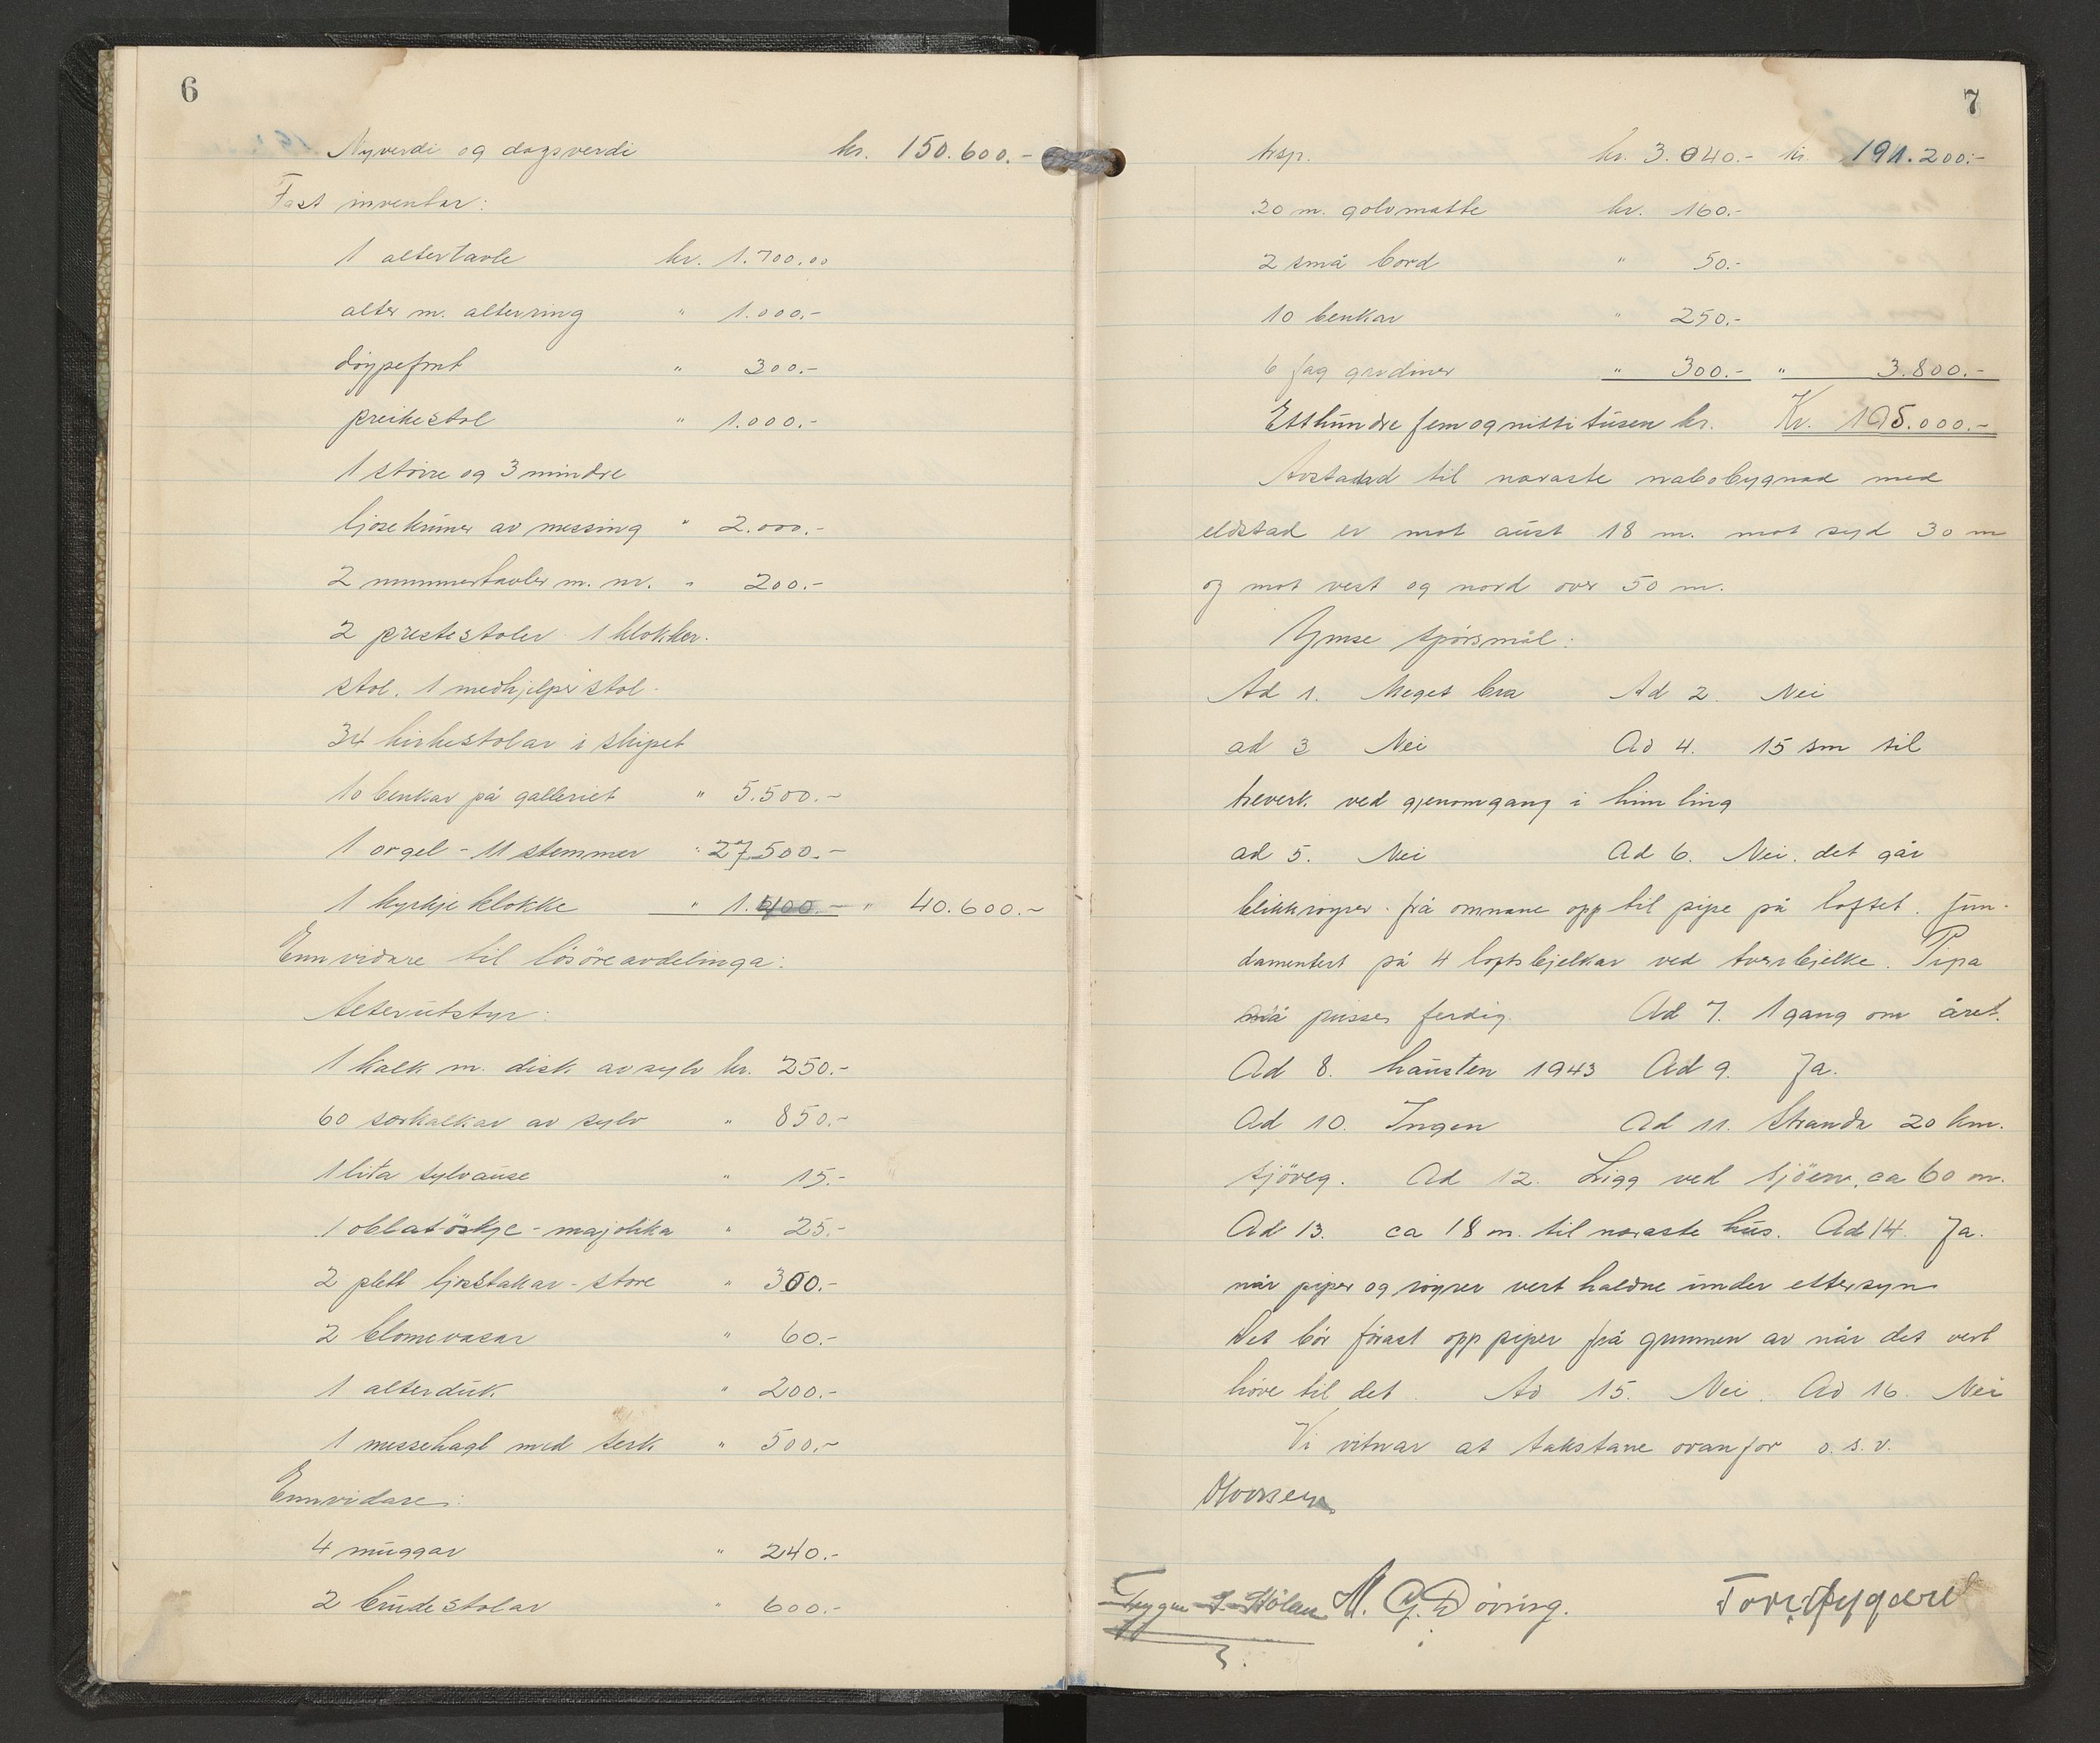 6
Nyverdi og dagsverdi kr. 150.600.-
Fast inventar:
1 altertavle kr. 1.700.00
alter m. alterring " 1.000.-
döypefont " 300.-
preikestol " 1.000.-
1 större og 3 mindre
ljosekruner av messing " 2.000.-
2 nummertavler m. nr. " 200.-
2 prestestoler 1 klokker.
stol. 1 medhjelperstol.
34 kirkestolar i skipet
10 benkar på galleriet " 5.500.-
1 orgel - 11 stemmer " 27.500.-
1 kyrkje klokke " 1.400.- " 40.600.-
Ennvidare til lösöreavdelinga:
Alterutstyr:
1 kalk m. disk av sylv kr. 250.-
60 sørkalkar av sylv " 850.-
1 lita sylvause " 15.-
1 oblatöskje - majolika " 25.-
2 plett ljosstakar - store " 300.-
2 blomevasar " 60.-
1 alterduk " 200.-
1 messehagl med serk " 500.-
Ennvidare:
4 muggar " 240.-
2 brudestolar " 600.-
7
trsp. kr. 3.040.- kr. 191.200.-
20 m. golvmatte kr. 160.-
2 små bord " 50.-
10 benkar " 250.-
6 fag gardiner " 300.- " 3.800.-
Etthundre femognitti tusen kr. Kr. 195.000.-
Avstand til naraste nabobygnad med
eldstad er mot aust 18 m. mot syd 30 m
og mot vest og nord over 50 m.
Ymse spörsmål:
Ad 1. Meget bra Ad 2. Nei
ad 3 Nei Ad 4. 15 sm til
treverk ved gjenomgang i himling
ad 5. Nei Ad 6. Nei. det går
blikkröyrer frå omnane opp til pipe på loftet. fun-
damentert på 4 loftsbjelkar ved tverrbjelke. Pipa
må pusses ferdig. Ad 7. 1 gang om året.
Ad 8. hausten 1943 Ad 9. Ja.
Ad 10. Ingen Ad 11. Stranda 20 km.
sjöveg. Ad 12. Ligg ved sjöen, ca 60 m.
Ad 13. ca 18 m. til naraste hus. Ad 14. Ja.
når piper og röyrer vert haldne under ettersyn
Det bör förast opp piper frå grunnen av når det vert
höve til det. Ad 15. Nei. Ad 16. Nei
Vi vitnar at takstane ovanfor o.s.v.
M. G. Döving.